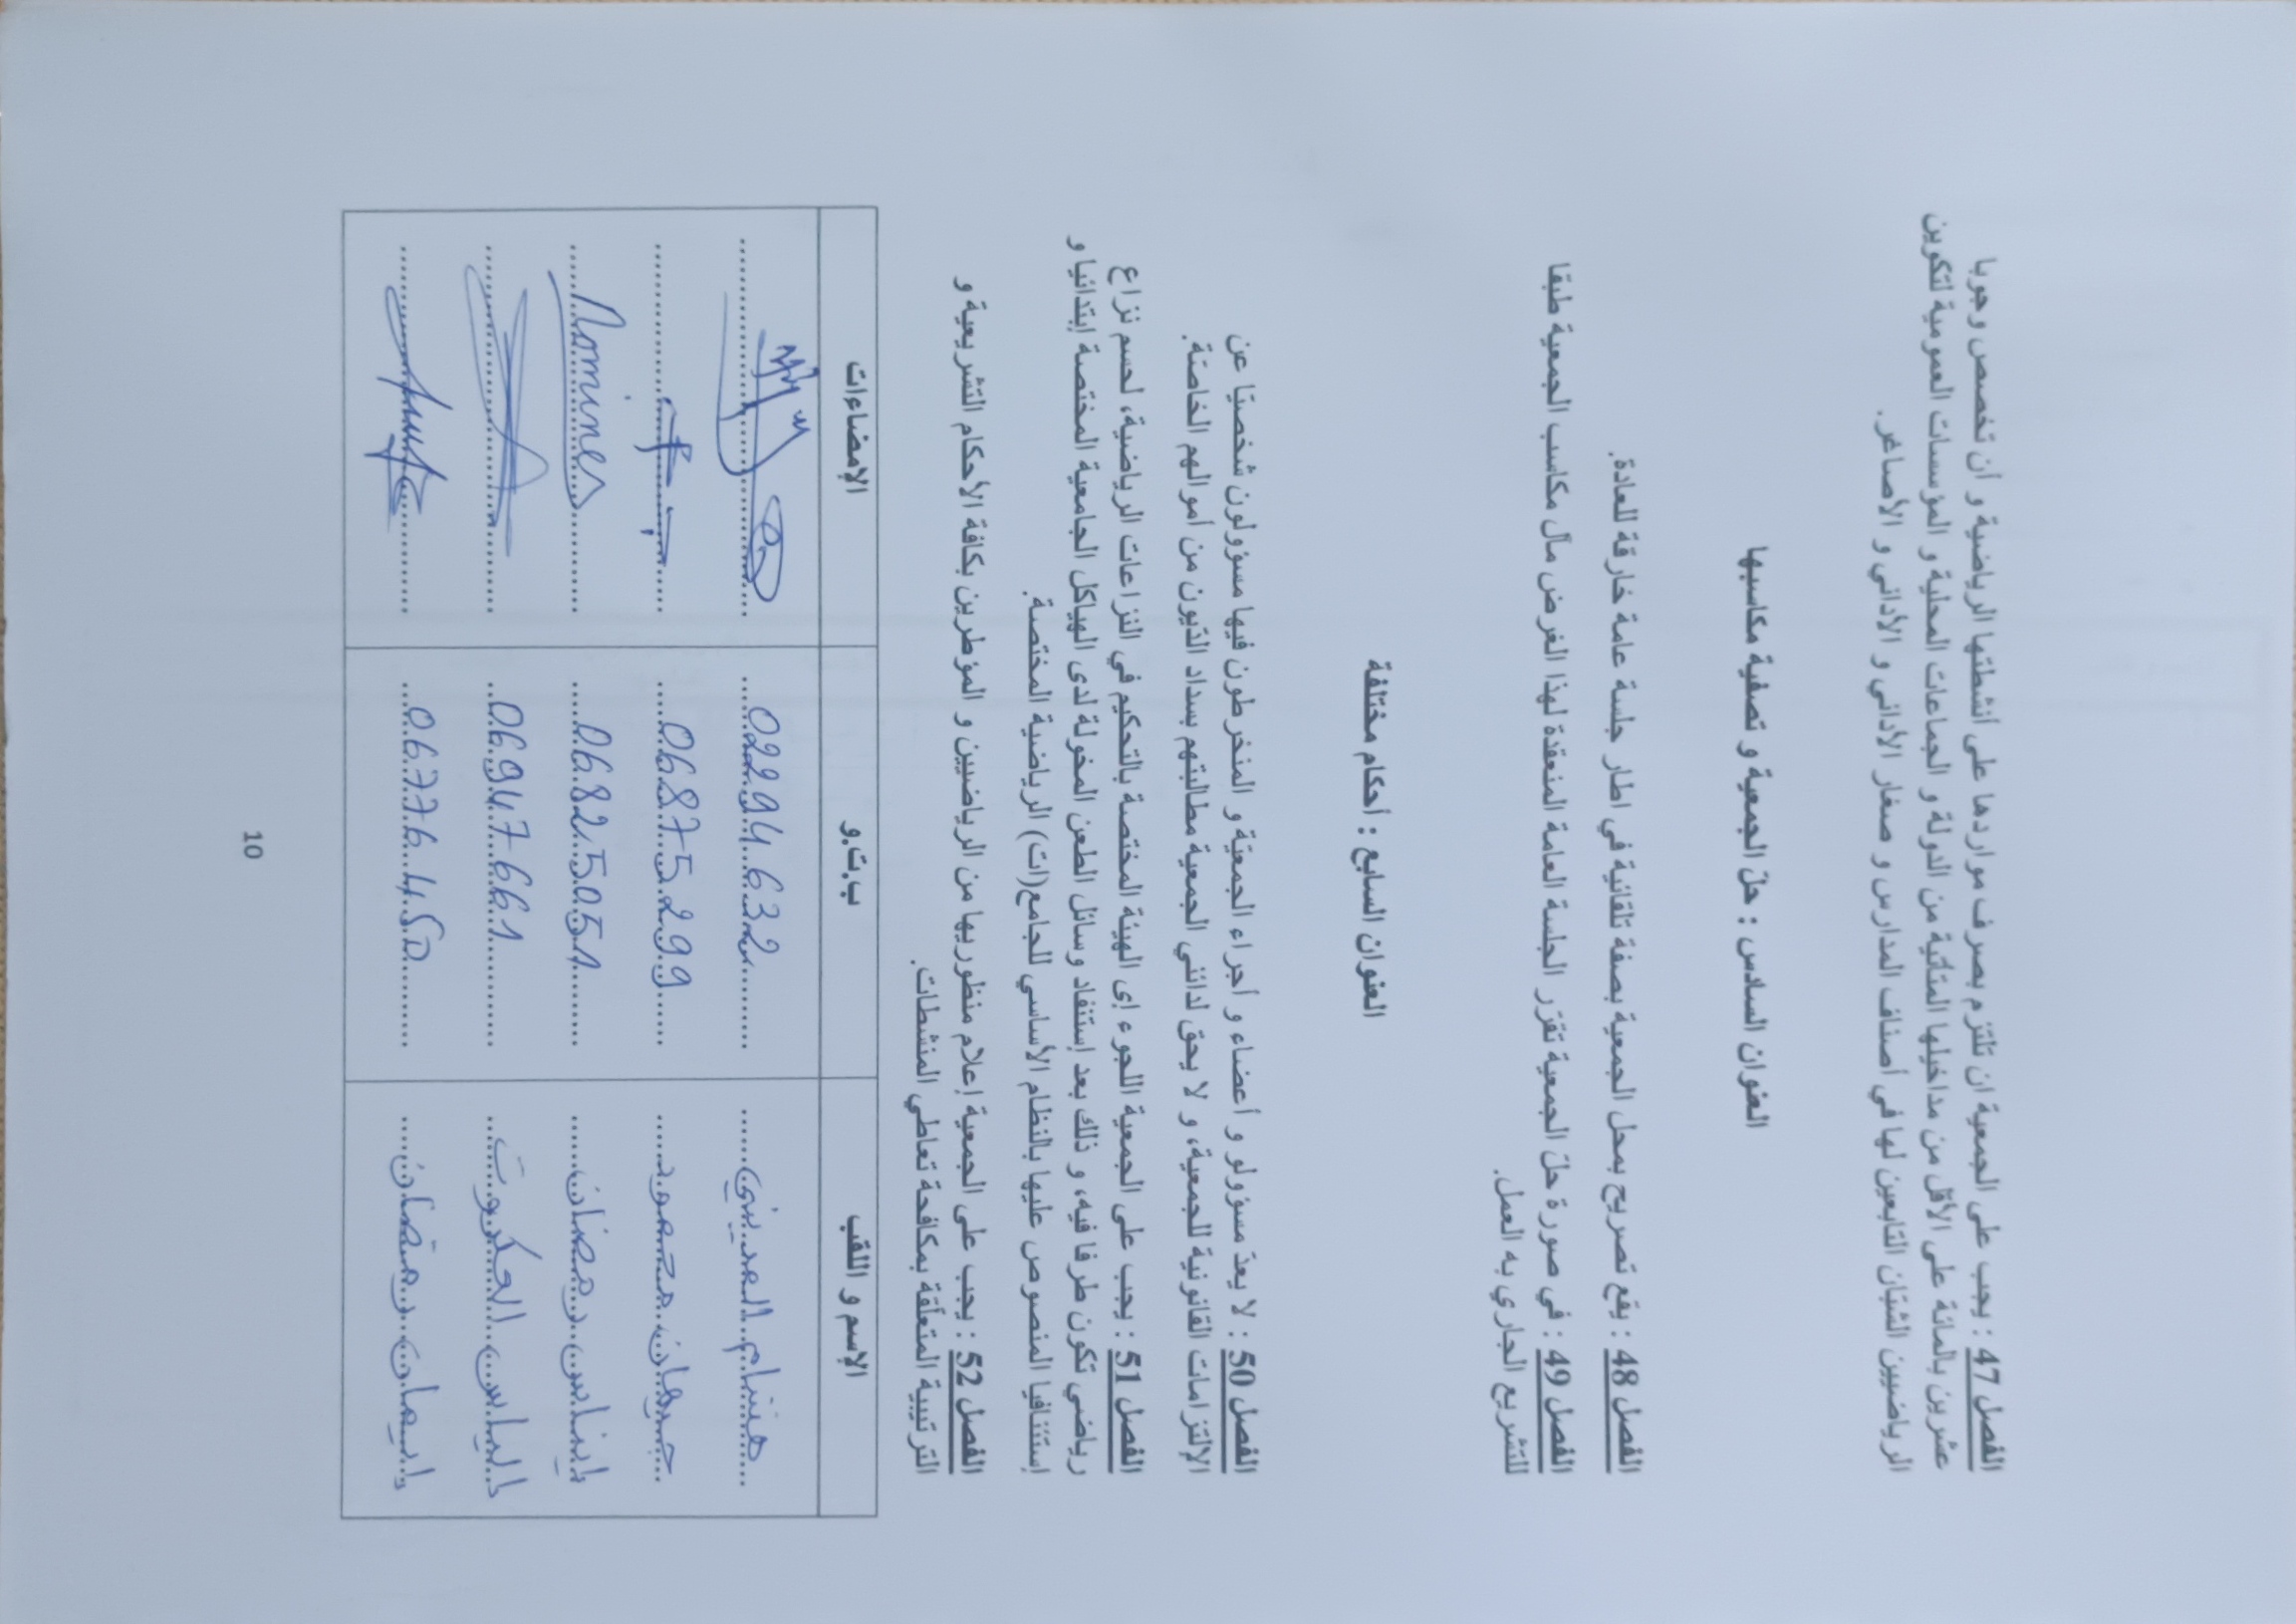 الفصل 47 : يجب على الجمعية ان تلتزم بصرف مواردها على أنشطتها الرياضية و أن تخصص وجوبا
عشرين بالمائة على الأقل من مداخيلها المتأتية من الدولة و الجماعات المحلية و المؤسسات العمومية لتكوين
الرياضيين الشبّان التابعين لها في أصناف المدارس و صغار الأداني و الأداني و الأصاغر.
العنوان السادس : حلّ الجمعية و تصفية مكاسبها
الفصل 48 : يقع تصريح بمحل الجمعية بصفة تلقائية في اطار جلسة عامة خارقة للعادة.
الفصل 49 : في صورة حلّ الجمعية تقرّر الجلسة العامة المنعقدة لهذا الغرض مآل مكاسب الجمعية طبقا
للتشريع الجاري به العمل.
العنوان السابع : أحكام مختلفة
الفصل 50 : لا يعدّ مسؤولو و أعضاء و أجراء الجمعيّة و المنخرطون فيها مسؤولون شخصيّا عن
الإلتزامات القانونية للجمعية، و لا يحق لدائني الجمعية مطالبتهم بسداد الدّيون من أموالهم الخاصّة.
الفصل 51 : يجب على الجمعية اللجوء إى الهيئة المختصة بالتحكيم في النزاعات الرياضية، لحسم نزاع
رياضي تكون طرفا فيه، و ذلك بعد إستنفاد وسائل الطعن المخولة لدى الهياكل الجامعية المختصة إبتدائيا و
إستئنافيا المنصوص عليها بالنظام الأساسي للجامع(ات) الرياضية المختصة.
الفصل 52 : يجب على الجمعية إعلام منظوريها من الرياضيين و المؤطرين بكافة الأحكام التشريعية و
الترتيبية المتعلّقة بمكافحة تعاطي المنشطات.
الإسم و اللقب ب.ت.و الإمضاءات
هشام المديني 02294632
جيهان محمود 06875299
إيناس رمضان 06825051 Lamines
إلياس 06947661
إيمان رمضان 06776450
10